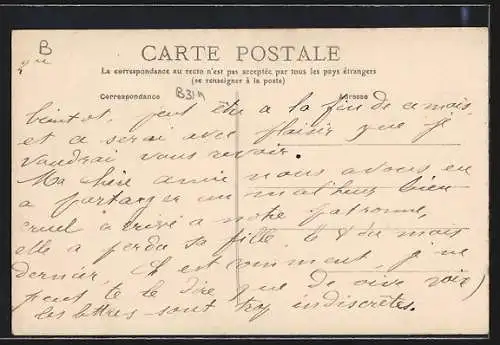 B
CARTE POSTALE
La correspondance au recto n'est pas acceptée par tous les pays étrangers
(se renseigner à la poste)
Correspondance
B31A
Adresse
bientot, peut être a la fin de a mois
et a serai avec plaisir que je
voudrai vous revoir.
Ma chère amie nous avons eu
a partager un malheur bien
cruel arrivé a notre patronne,
elle a perdu sa fille le 8 du mois
dernier, est vomment, je ne
peut te le dire que de vive voix
les lettres sont trop indiscrètes.